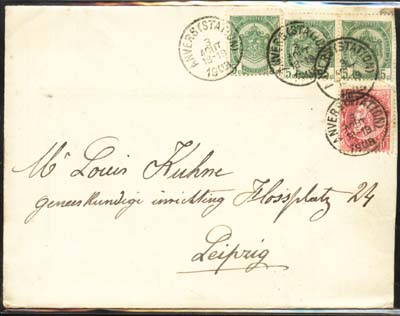 ANVERS (STATION)
3
AOUT
18-19
ANVERS (STATION)
ANVERS (STATION)
ANVERS (STATION)
Mr Louis Kuhne
geneeskundige inrichting Flossplatz 24
Leipzig